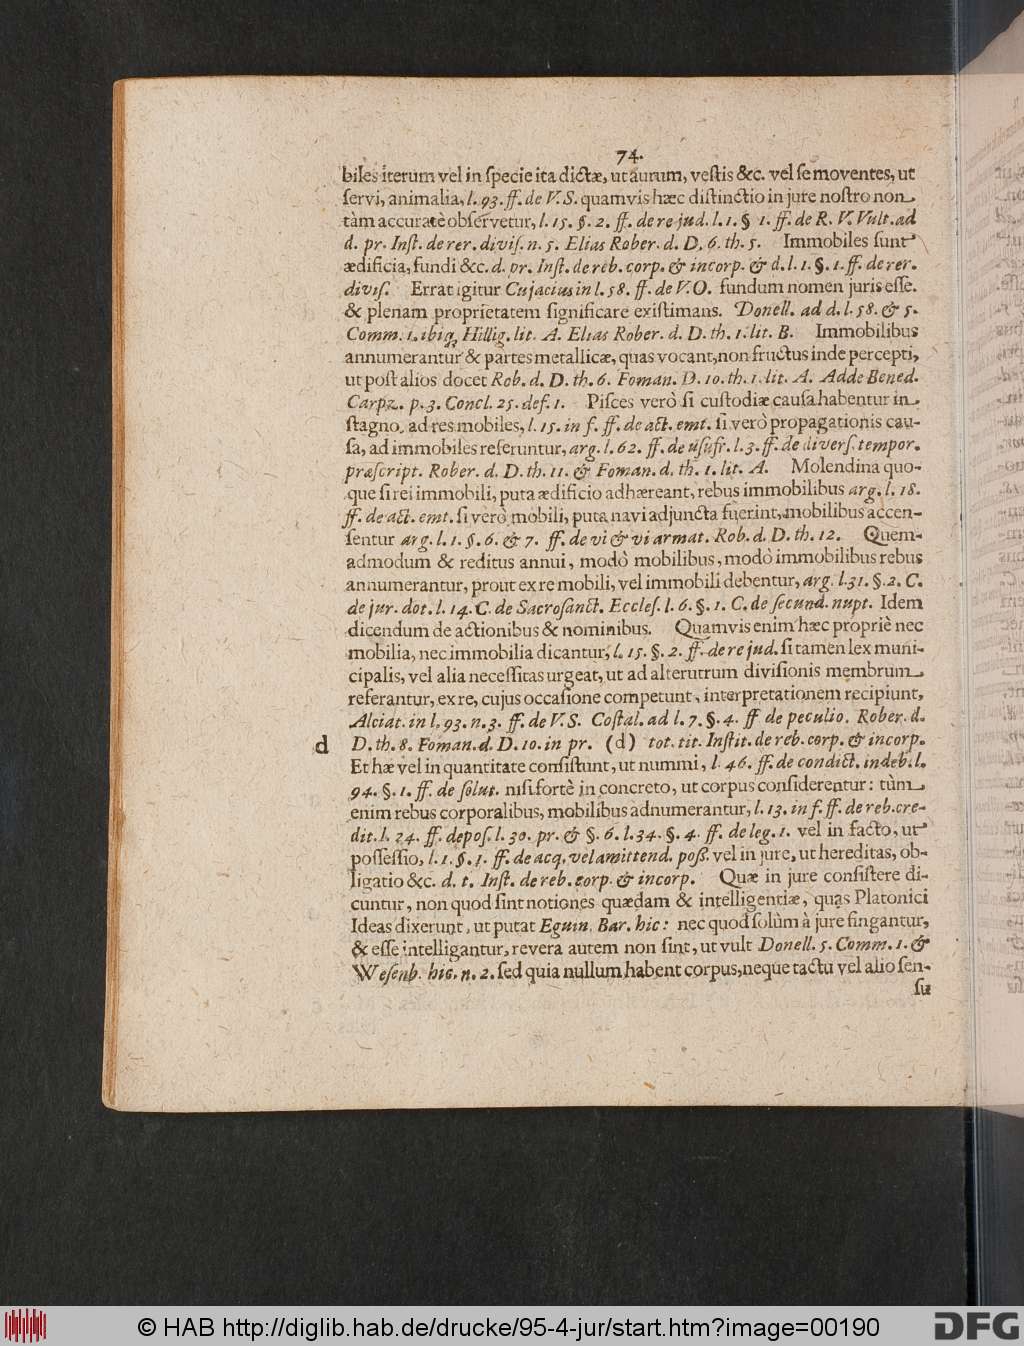 74.
biles iterum vel in specie ita dictæ, ut aurum, vestis &c. vel se moventes, ut
servi, animalia, l. 93. ff. de V. S. quamvis hæc distinctio in jure nostro non
tàm accuratè observetur, l. 15. §. 2. ff. de re jud. l. 1. § 1. ff. de R. V. Vult. ad
d. pr. Inst. de rer. divis. n. 5. Elias Rober. d. D. 6. th. 5. Immobiles sunt
ædificia, fundi &c. d. pr. Inst. de reb. corp. & incorp. & d. l. 1. §. 1. ff. de rer.
divis. Errat igitur Cujacius in l. 58. ff. de V. O. fundum nomen juris esse.
& plenam proprietatem significare existimans. Donell. ad d. l. 58. & 5.
Comm. 1. ibiq; Hillig. lit. A. Elias Rober. d. D. th. 1. lit. B. Immobilibus
annumerantur & partes metallicæ, quas vocant, non fructus inde percepti,
ut post alios docet Rob. d. D. th. 6. Foman. D. 10. th. 1. lit. A. Adde Bened.
Carpz. p. 3. Concl. 25. def. 1. Pisces verò si custodiæ causa habentur in
stagno, ad res mobiles, l. 15. in f. ff. de act. emt. si verò propagationis cau-
sa, ad immobiles referuntur, arg. l. 62. ff. de usufr. l. 3. ff. de divers. tempor.
præscript. Rober. d. D. th. 11. & Foman. d. th. 1. lit. A. Molendina quo-
que si rei immobili, puta ædificio adhæreant, rebus immobilibus arg. l. 18.
ff. de act. emt. si verò mobili, puta navi adjuncta fuerint, mobilibus accen-
sentur arg. l. 1. §. 6. & 7. ff. de vi & vi armat. Rob. d. D. th. 12. Quem-
admodum & reditus annui, modò mobilibus, modò immobilibus rebus
annumerantur, prout ex re mobili, vel immobili debentur, arg. l. 31. §. 2. C.
de jur. dot. l. 14. C. de Sacrosanct. Eccles. l. 6. §. 1. C. de secund. nupt. Idem
dicendum de actionibus & nominibus. Quamvis enim hæc propriè nec
mobilia, nec immobilia dicantur, l. 15. §. 2. ff. de re jud. si tamen lex muni-
cipalis, vel alia necessitas urgeat, ut ad alterutrum divisionis membrum
referantur, ex re, cujus occasione competunt, interpretationem recipiunt,
Alciat. in l. 93. n. 3. ff. de V. S. Costal. ad l. 7. §. 4. ff de peculio. Rober. d.
d D. th. 8. Foman. d. D. 10. in pr. (d) tot. tit. Instit. de reb. corp. & incorp.
Et hæ vel in quantitate consistunt, ut nummi, l. 46. ff. de condict. indeb. l.
94. §. 1. ff. de solut. nisi fortè in concreto, ut corpus considerentur: tùm
enim rebus corporalibus, mobilibus adnumerantur, l. 13. in f. ff. de reb. cre-
dit. l. 24. ff. depos. l. 30. pr. & §. 6. l. 34. §. 4. ff. de leg. 1. vel in facto, ut
possessio, l. 1. §. 1. ff. de acq. vel amittend. poss. vel in jure, ut hereditas, ob-
ligatio &c. d. t. Inst. de reb. corp. & incorp. Quæ in jure consistere di-
cuntur, non quod sint notiones quædam & intelligentiæ, quas Platonici
Ideas dixerunt, ut putat Eguin. Bar. hic: nec quod solùm à jure fingantur,
& esse intelligantur, revera autem non sint, ut vult Donell. 5. Comm. 1. &
Wesenb. hic. n. 2. sed quia nullum habent corpus, neque tactu vel alio sen-
su
© HAB http://diglib.hab.de/drucke/95-4-jur/start.htm?image=00190
DFG